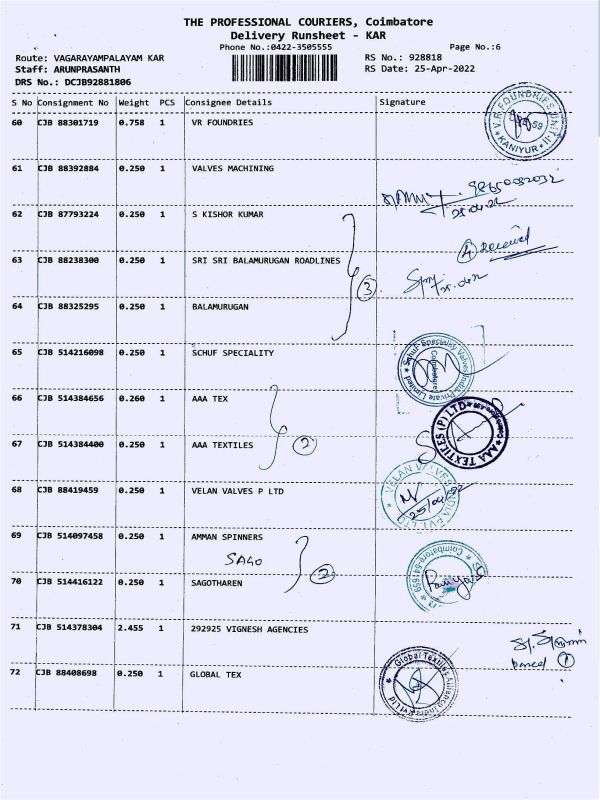 THE PROFESSIONAL COURIERS, Coimbatore
Delivery Runsheet - KAR
Phone No.:0422-3505555 Page No.:6
Route: VAGARAYAMPALAYAM KAR RS No.: 928818
Staff: ARUNPRASANTH RS Date: 25-Apr-2022
DRS No.: DCJB92881806
S No Consignment No Weight PCS Consignee Details Signature
60 CJB 88301719 0.758 1 VR FOUNDRIES
V.R.FOUNDRIES UNIT-II
KANIYUR
61 CJB 88392884 0.250 1 VALVES MACHINING
25.04.22
62 CJB 87793224 0.250 1 S KISHOR KUMAR
4 received
63 CJB 88238300 0.250 1 SRI SRI BALAMURUGAN ROADLINES
3
25.04.22
64 CJB 88325295 0.250 1 BALAMURUGAN
65 CJB 514216098 0.250 1 SCHUF SPECIALITY
Schuf Speciality Valves India Private Limited
Coimbatore
66 CJB 514384656 0.260 1 AAA TEX
67 CJB 514384400 0.250 1 AAA TEXTILES
2
AAA TEXTILES (P) LTD
68 CJB 88419459 0.250 1 VELAN VALVES P LTD
VELAN VALVES INDIA PVT. LTD
25/04/22
69 CJB 514097458 0.250 1 AMMAN SPINNERS
SAGO
2
Coimbatore-641659
70 CJB 514416122 0.250 1 SAGOTHAREN
71 CJB 514378304 2.455 1 292925 VIGNESH AGENCIES
1
72 CJB 88408698 0.250 1 GLOBAL TEX
Global Textiles Alliance India Pvt Ltd